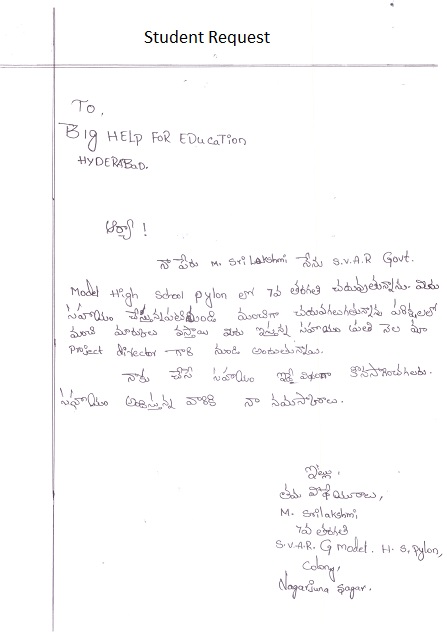 Student Request
To,
Big HELP FOR EDucaTion
HYDERABaD.
ఆర్యా !
నా పేరు M. Sri Lakshmi నేను S.V.A.R Govt.
Model High School pylon లో 7వ తరగతి చదువుతున్నాను. మీరు
సహాయం చేస్తున్న నుండి మంచిగా చదువగలుగుతున్నాను పరీక్షలలో
మంచి మార్కులు వస్తాయి మీరు ఇస్తున్న సహాయం ప్రతి నెల మా
Project director గారి నుండి అందుతున్నాయి.
నాకు చేసే సహాయం ఇదే విధంగా కొనసాగించగలరు.
సహాయం అందిస్తున్న వారికి నా నమస్కారాలు.
ఇట్లు,
తమ విధేయురాలు,
M. Srilakshmi
7వ తరగతి
S.V.A.R. G model. H. S, Pylon,
Colony,
Nagarjuna Sagar.